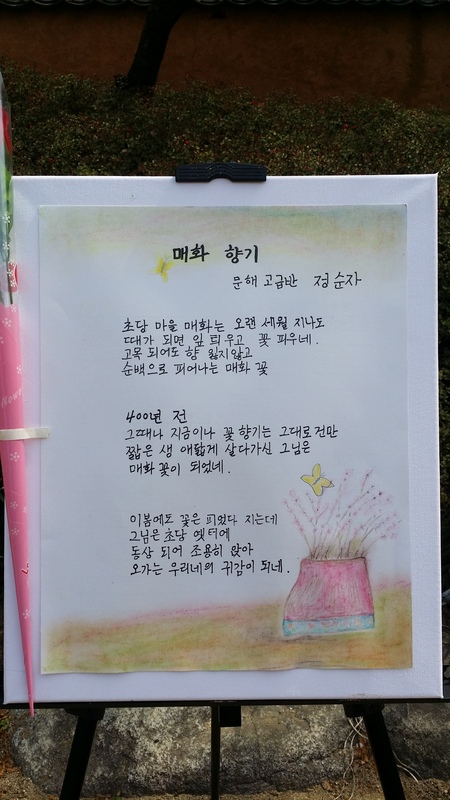 매화 향기
문해 고급반 정순자
초당 마을 매화는 오랜 세월 지나도
때가 되면 잎 틔우고 꽃 피우네.
고목 되어도 향 잃지않고
순백으로 피어나는 매화 꽃
400년 전
그때나 지금이나 꽃 향기는 그대로건만
짧은 생 애닯게 살다가신 그님은
매화꽃이 되었네.
이봄에도 꽃은 피었다 지는데
그님은 초당 옛터에
동상 되어 조용히 앉아
오가는 우리네의 귀감이 되네.